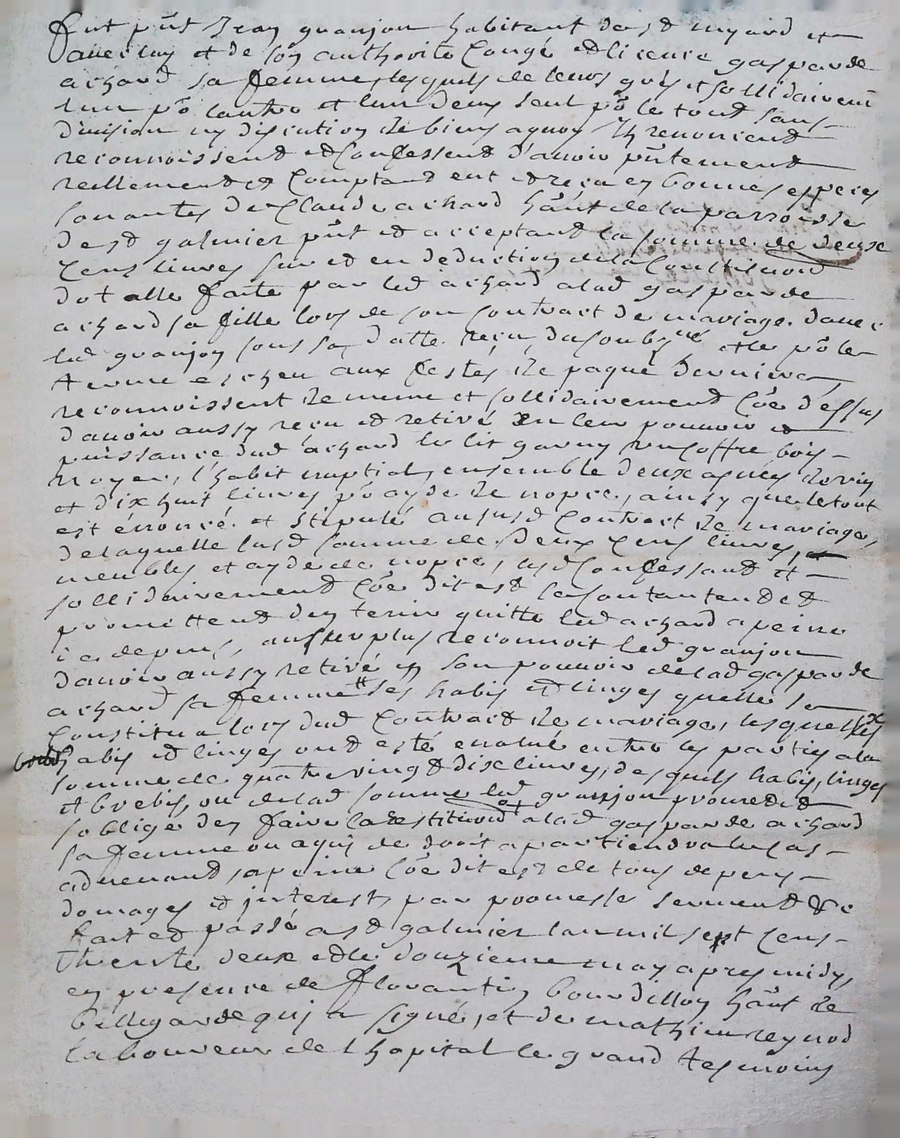 fut pnt Jean granjon habitant de st myard et
avec luy et de son authorité Congé et licence gasparde
achard sa femme, lesquels de leurs grés et sollidairement
lun po lautre et lun deux seul po le tout sans
division ny discution de biens a quoy Ils renoncent
reconnoissent et Confessent d'avoir pntement
reellement et Comptand eut et receu en bonnes especes
sonantes de Claude achard hant de la parroisse
de st galmier pnt et acceptand la somme de deux
Cens livres sur et en deduction de la Constitution
dotalle faite par led achard a lad gasparde
achard sa fille lors de son Contract de mariage. d'avec
led granjon sous sa datte receu du soubsné et le po le
terme escheu aux festes de paque dernieres,
reconnoissent de meme et sollidairement Coe d'essus
d'avoir aussy receu et retiré En leur pouvoir et
puissance dud achard le lit garny un coffre bois
noyer, l'habit nuptial, ensemble deux asnées de vin
et dix huit livres po ayde de nopce, ainsy que le tout
est enoncé et stipulé ausud Contract de mariage,
de laquelle susd somme de deux Cens livres, et
meubles et ayde de nopce, lesd Confessant et
sollidairement Coe dit est se contantent et
promettent d'en tenir quitte led achard a peine
de depens, au surplus reconnoit led granjon
d'avoir aussy retiré en son pouvoir de lad gasparde
achard sa femme ses habis et linges quelle se
Constitua lors dud Contract de mariage, lesquelles
habis et linges ont esté evalué entre les parties a la
somme de quatre vingt dise livres, desquels habis, linges
et brebis, ou de lad somme led granjon promet et
soblige d'en faire la restitution a lad gasparde achard
sa femme ou a qui de droit apartiendra le cas
advenant, a peine Coe dit est de tous depens
domages et interests, par promesse serment &c
fait et passé a st galmier lan mil sept Cens
trente deux et le douzieme may apres midy,
en presence de florantin bourdillon hant de
bellegarde qui a signé, et de mathieu reynod
laboureur de l'hopital le grand tesmoins